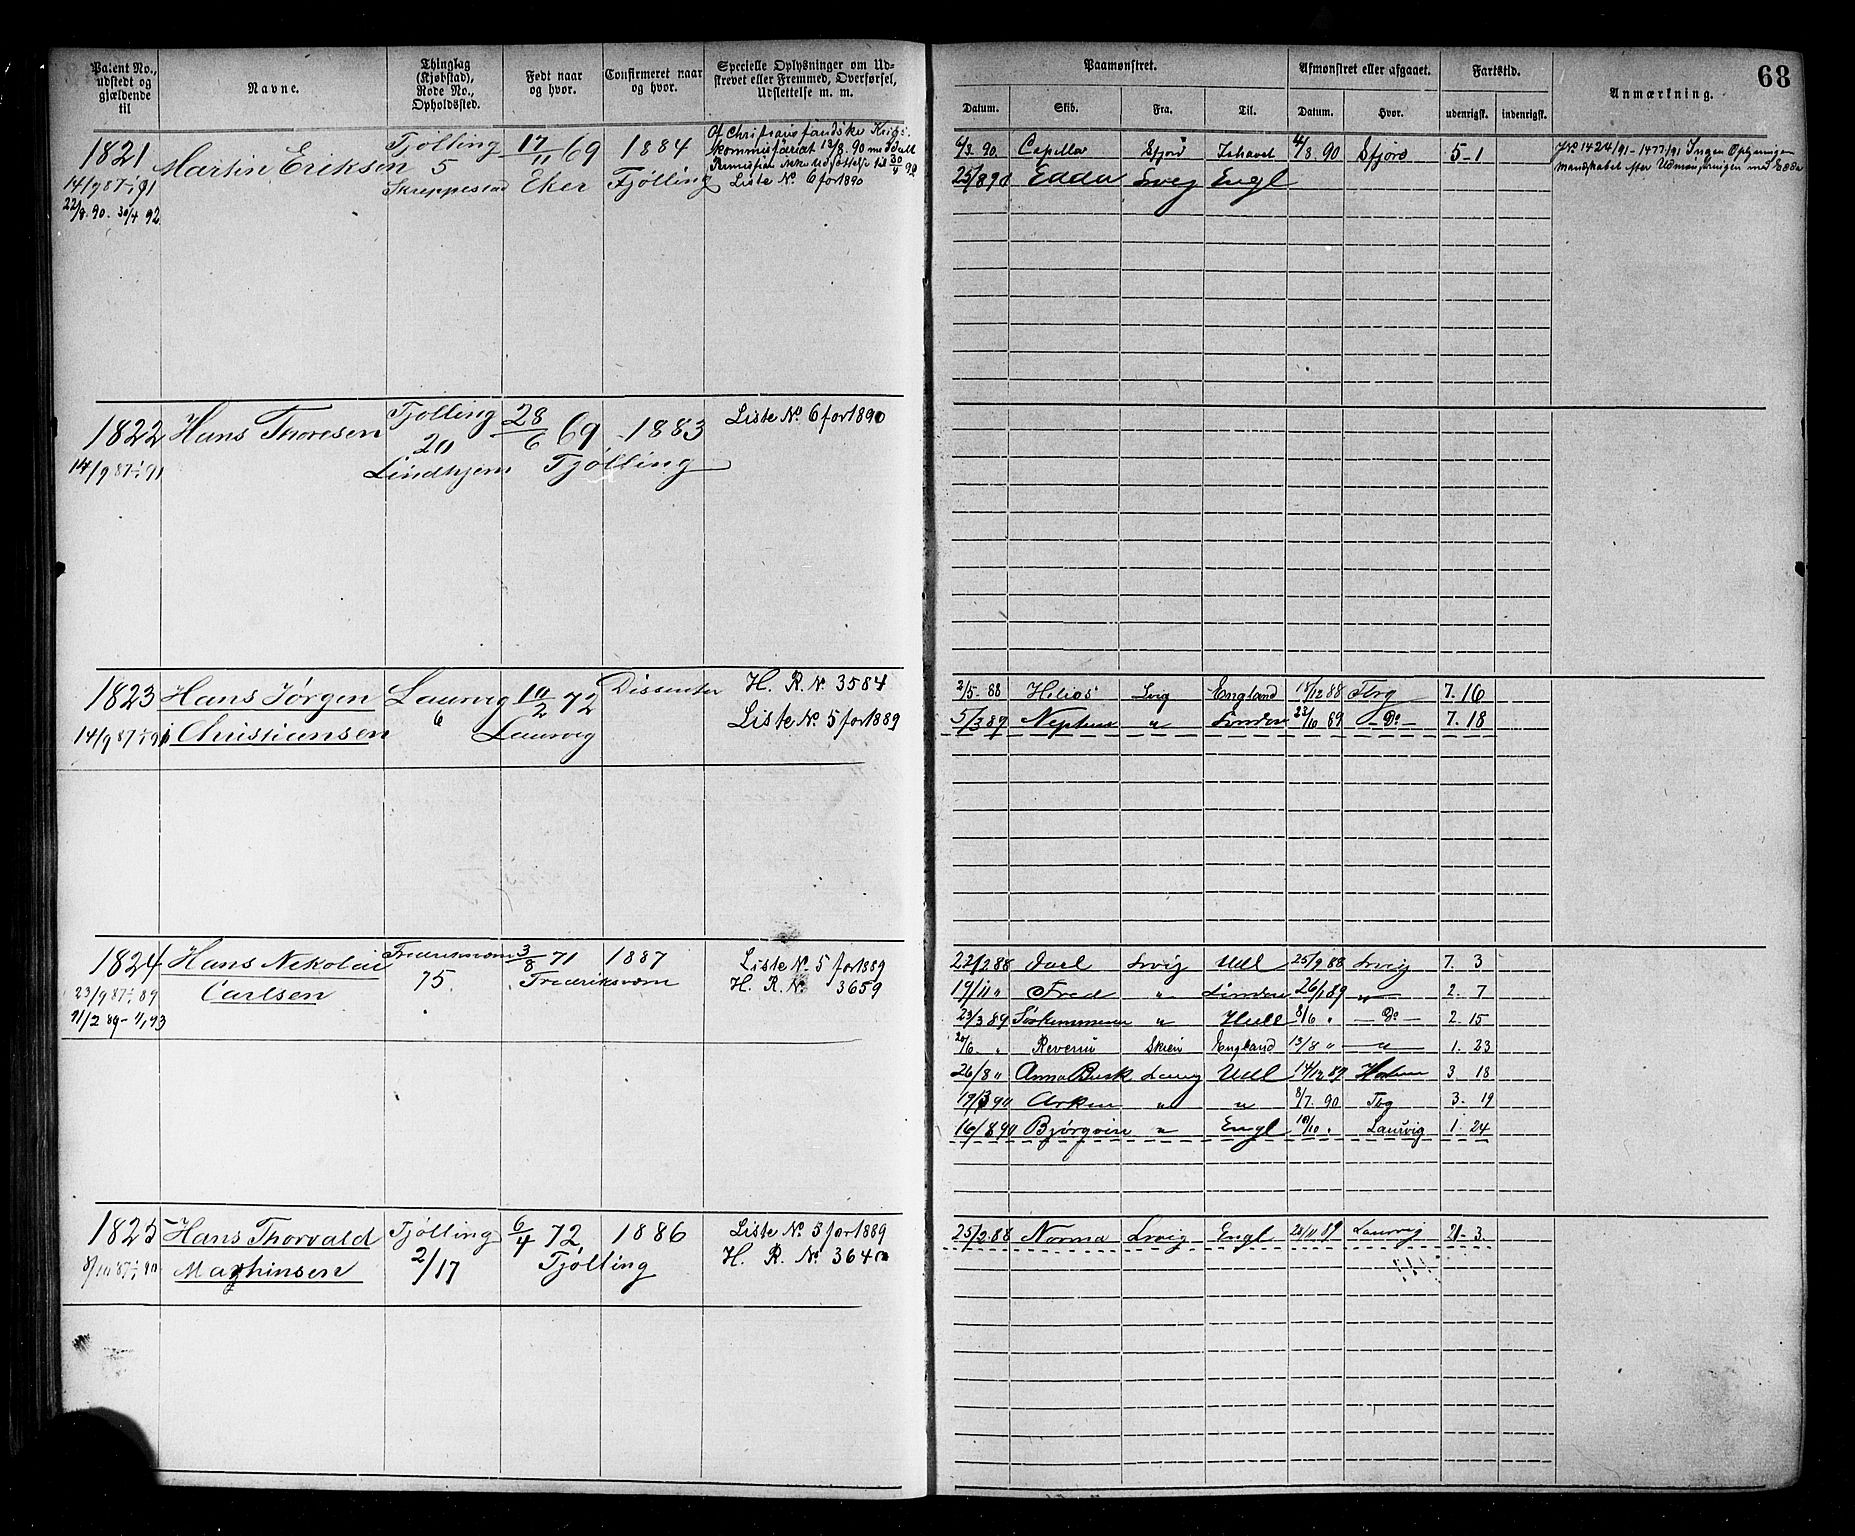 68
Patent No., udstedt og gjældende til
Navne.
Thinglag (Kjøbstad), Rode No., Opholdssted.
Født naar og hvor.
Confirmeret naar og hvor.
Specielle Oplysninger om Udskrevet eller Fremmed, Overførsel, Udslettelse m. m.
Paamønstret.
Afmønstret eller afgaaet.
Fartstid.
Anmærkning.
Datum. Skib. Fra. Til. Datum. Hvor. udenrigsk. indenrigsk.
1821 Martin Eriksen Tjølling 5 17/11 69 1884
14/9 87-1/1 91 Skreppestad Eker Tjølling
22/8 90 - 30/4 92
Liste No. 6 for 1890
4/3 90. Capella Sfjord Ishavet 4/8 90 Sfjord 5-1
25/8 90 Edda Lvig Engl
No. 1424/91-1477/91 Ingen Oplysninger
mandskabet efter Udmønstringen med Edda
1822 Hans Thoresen Tjølling 28/6 69 1883 Liste No. 6 for 1890
20
14/9 87-1/1 91 Lindhjem Tjølling
1823 Hans Jørgen Laurvig 10/2 72 Dissenter H. R. No. 3584
6
14/9 87-1/1 91 Christiansen Laurvig Liste No. 5 for 1889
2/5 88 Helios Lvig England 18/12 88 Fbrg 7. 16
5/3 89 Neptun " London 23/10 89 - Do - 7. 18
1824 Hans Nekolai Fredriksværn 3/8 71 1887 Liste No. 5 for 1889
23/9 87-1/1 89 Carlsen 75. Fredriksværn H. R. No. 3659
21/2 89 - 1/1 93
22/2 88 Lvig Udl 25/9 88 Lvig 7. 3
19/11 " Fred " London 26/1 89 " 2. 7
23/3 89 " Hull 8/6 " - Do - 2. 15
20/6 " Skien England 13/8 " " 1. 23
26/8 " Anna Busk Laurvig Udl 14/12 89 3 18
19/3 90 Arken " " 8/7. 90 Tbg 3. 19
16/8 90 Bjørgvin " Engl 10/10 " Laurvig 1. 24
1825 Hans Thorvald Tjølling 6/4 72 1886 Liste No. 5 for 1889
8/10 87-1/1 90 Mathinsen 2/17 Tjølling H. R. No. 3640
25/2 88 Norma Lvig Engl 28/11 89 Laurvig 21-3.